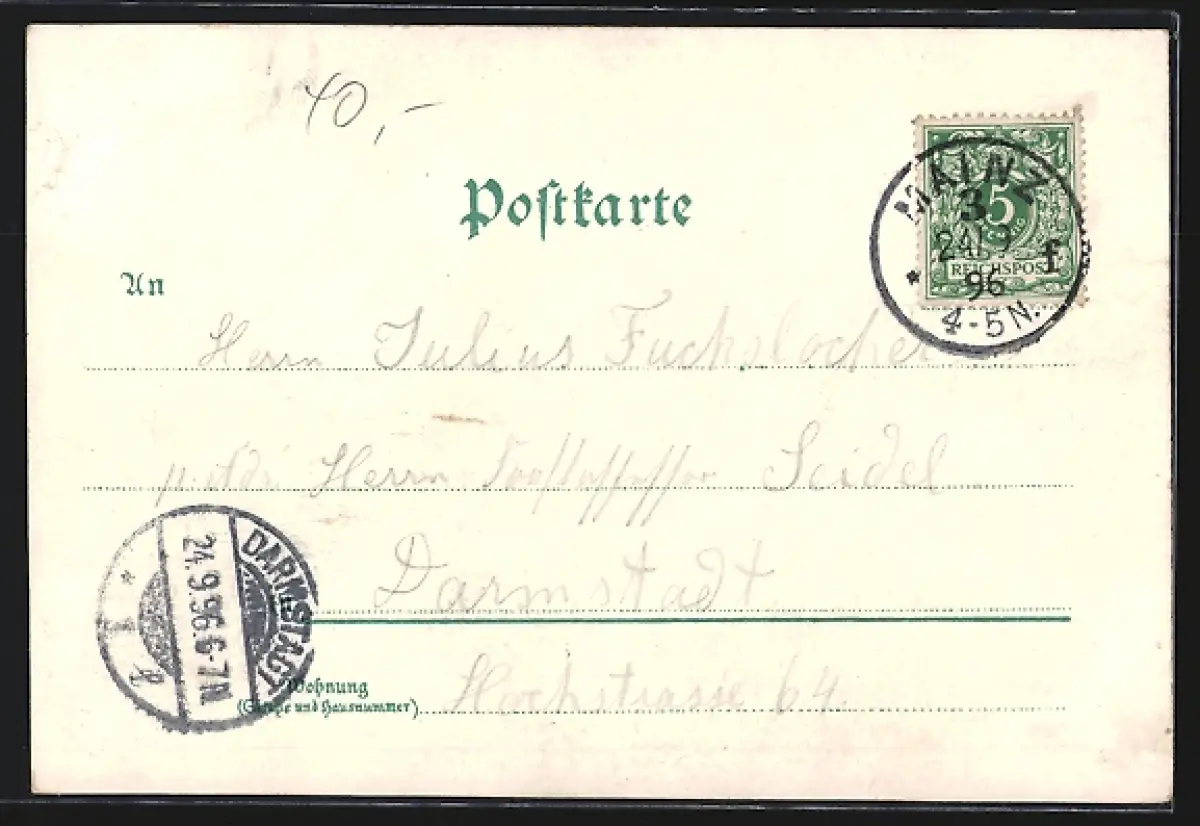 40,-
Postkarte
MAINZ
3
24 9
96
f
* 4-5 N.
5
REICHSPOST
An
Herrn Julius Fuchslocher
Herrn Seidel
Darmstadt
DARMSTADT
24.9.96.6-7N.
* 1
Wohnung
(Straße und Hausnummer)
Hochstrasse 64.